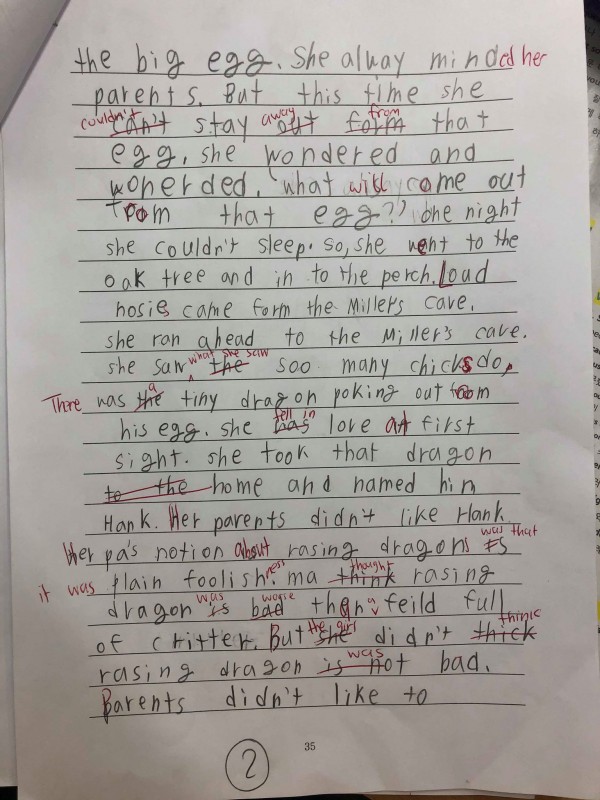 the big egg. She alway minded her
parents. But this time she
couldn't away from
can't stay out form that
egg, she wondered and
wonerded, "what will come out
from that egg?" One night
she couldn't sleep. so, she went to the
oak tree and in to the perch. Loud
nosies came form the Millers cave.
she ran ahead to the Miller's cave.
what she saw
she saw the soo many chicks do,
There was the a tiny dragon poking out from
fell in
his egg. she has love at first
sight. she took that dragon
to the home and named him
Hank. Her parents didn't like Hank.
was that
Her pa's notion about rasing dragons is
it was plain foolishness. ma think thought rasing
was worse a
dragon is bad than feild full
the girl think
of critter. But she didn't thick
was
rasing dragon is not bad.
Parents didn't like to
35
2